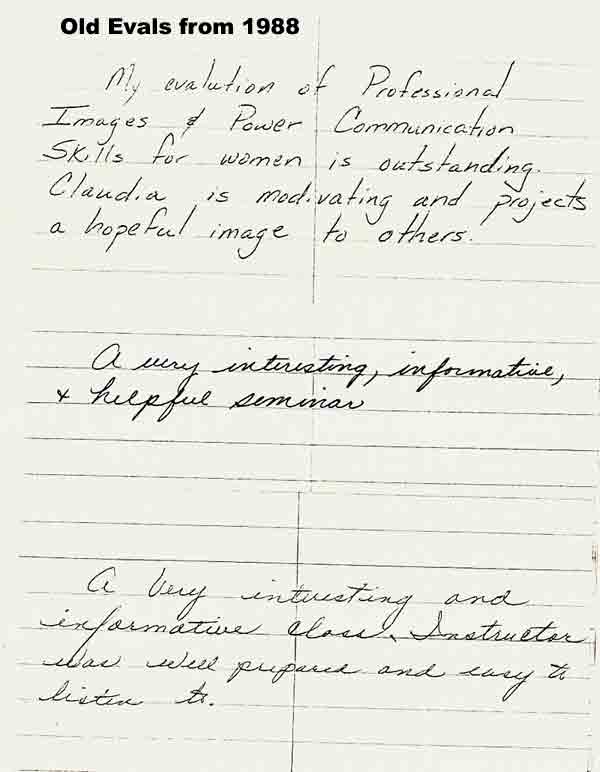 Old Evals from 1988
My evalution of Professional
Images & Power Communication
Skills for women is outstanding.
Claudia is modivating and projects
a hopeful image to others.
A very interesting, informative,
& helpful seminar
A very interesting and
informative class. Instructor
was well prepared and easy to
listen to.